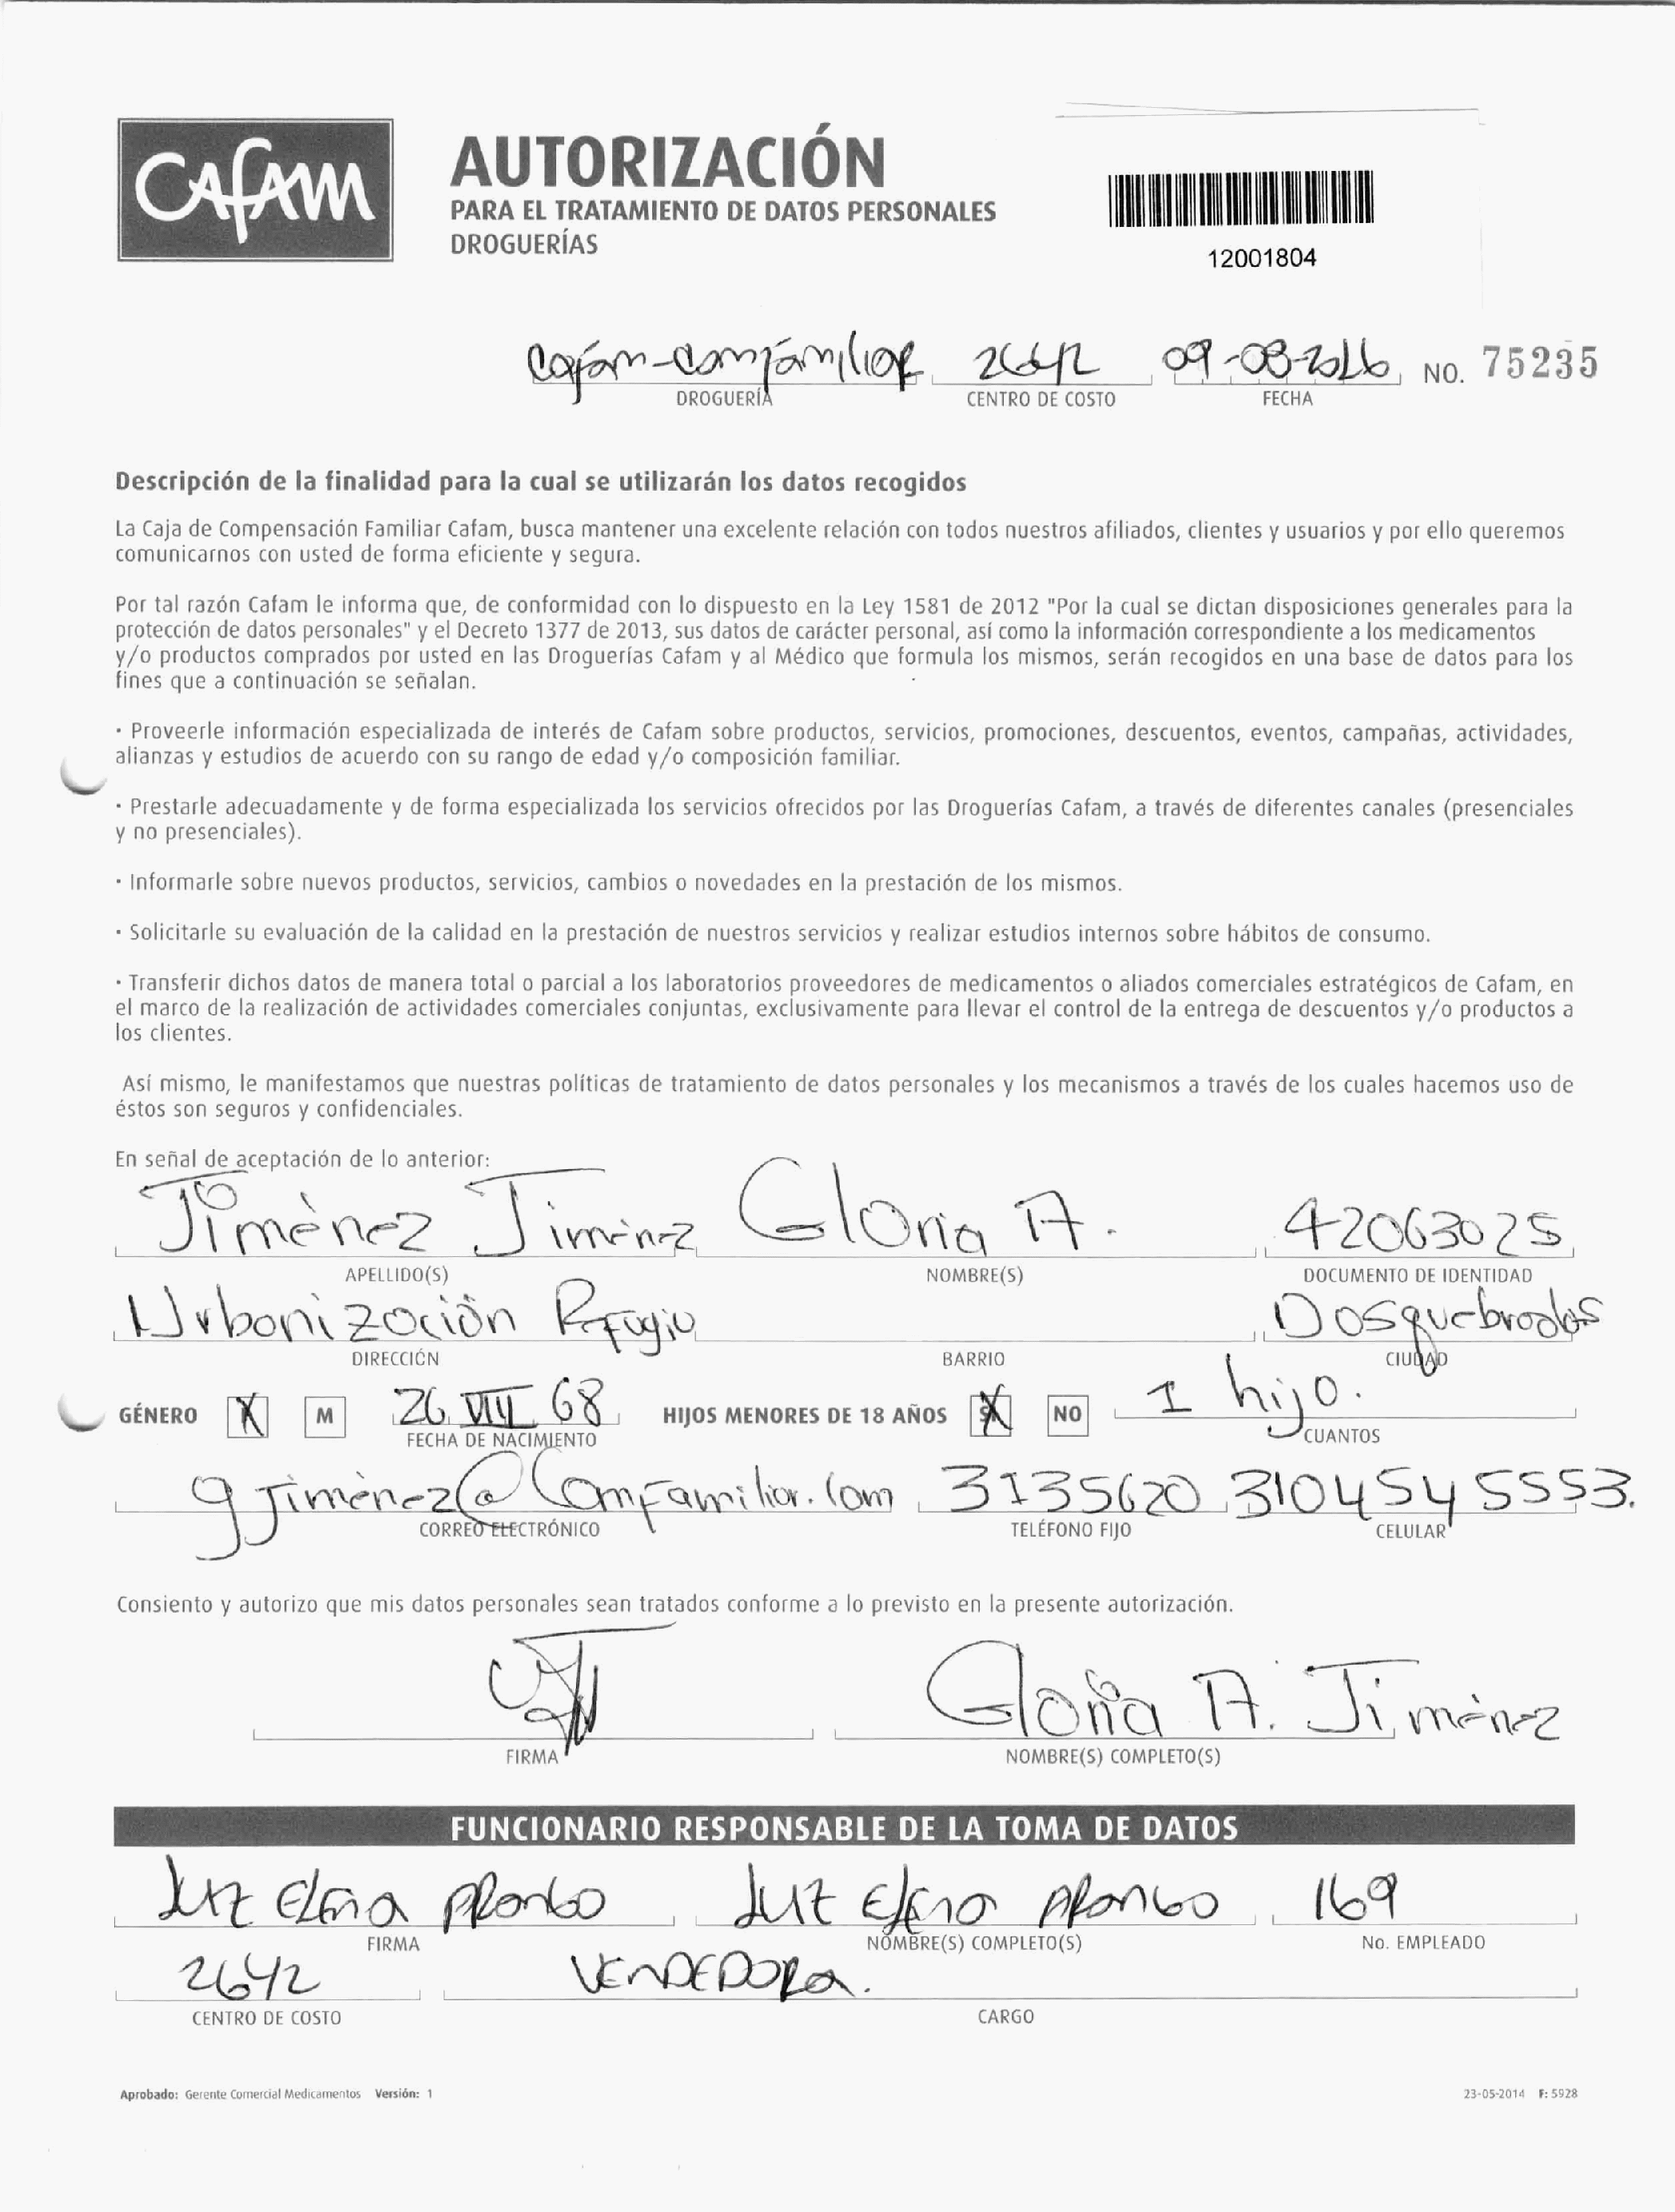 CAFAM
AUTORIZACIÓN
PARA EL TRATAMIENTO DE DATOS PERSONALES
DROGUERÍAS
12001804
Cafam-Comfamiliar 2642 09-03-2016 NO. 75235
DROGUERÍA CENTRO DE COSTO FECHA
Descripción de la finalidad para la cual se utilizarán los datos recogidos
La Caja de Compensación Familiar Cafam, busca mantener una excelente relación con todos nuestros afiliados, clientes y usuarios y por ello queremos
comunicarnos con usted de forma eficiente y segura.
Por tal razón Cafam le informa que, de conformidad con lo dispuesto en la Ley 1581 de 2012 "Por la cual se dictan disposiciones generales para la
protección de datos personales" y el Decreto 1377 de 2013, sus datos de carácter personal, así como la información correspondiente a los medicamentos
y/o productos comprados por usted en las Droguerías Cafam y al Médico que formula los mismos, serán recogidos en una base de datos para los
fines que a continuación se señalan.
· Proveerle información especializada de interés de Cafam sobre productos, servicios, promociones, descuentos, eventos, campañas, actividades,
alianzas y estudios de acuerdo con su rango de edad y/o composición familiar.
· Prestarle adecuadamente y de forma especializada los servicios ofrecidos por las Droguerías Cafam, a través de diferentes canales (presenciales
y no presenciales).
· Informarle sobre nuevos productos, servicios, cambios o novedades en la prestación de los mismos.
· Solicitarle su evaluación de la calidad en la prestación de nuestros servicios y realizar estudios internos sobre hábitos de consumo.
· Transferir dichos datos de manera total o parcial a los laboratorios proveedores de medicamentos o aliados comerciales estratégicos de Cafam, en
el marco de la realización de actividades comerciales conjuntas, exclusivamente para llevar el control de la entrega de descuentos y/o productos a
los clientes.
Así mismo, le manifestamos que nuestras políticas de tratamiento de datos personales y los mecanismos a través de los cuales hacemos uso de
éstos son seguros y confidenciales.
En señal de aceptación de lo anterior:
Jiménez Jiménez Gloria A. 42063025
APELLIDO(S) NOMBRE(S) DOCUMENTO DE IDENTIDAD
Urbanización Refugio Dosquebradas
DIRECCIÓN BARRIO CIUDAD
GÉNERO X M 26 VIII 68 HIJOS MENORES DE 18 AÑOS X NO 1 hijo.
FECHA DE NACIMIENTO CUANTOS
gjimenez@Comfamiliar.com 3135620 3104545553.
CORREO ELECTRÓNICO TELÉFONO FIJO CELULAR
Consiento y autorizo que mis datos personales sean tratados conforme a lo previsto en la presente autorización.
Gloria A. Jiménez
FIRMA NOMBRE(S) COMPLETO(S)
FUNCIONARIO RESPONSABLE DE LA TOMA DE DATOS
Luz Elena Luz Elena 169
FIRMA NOMBRE(S) COMPLETO(S) No. EMPLEADO
2642 VENDEDORA.
CENTRO DE COSTO CARGO
Aprobado: Gerente Comercial Medicamentos Versión: 1 23-05-2014 F: 5928